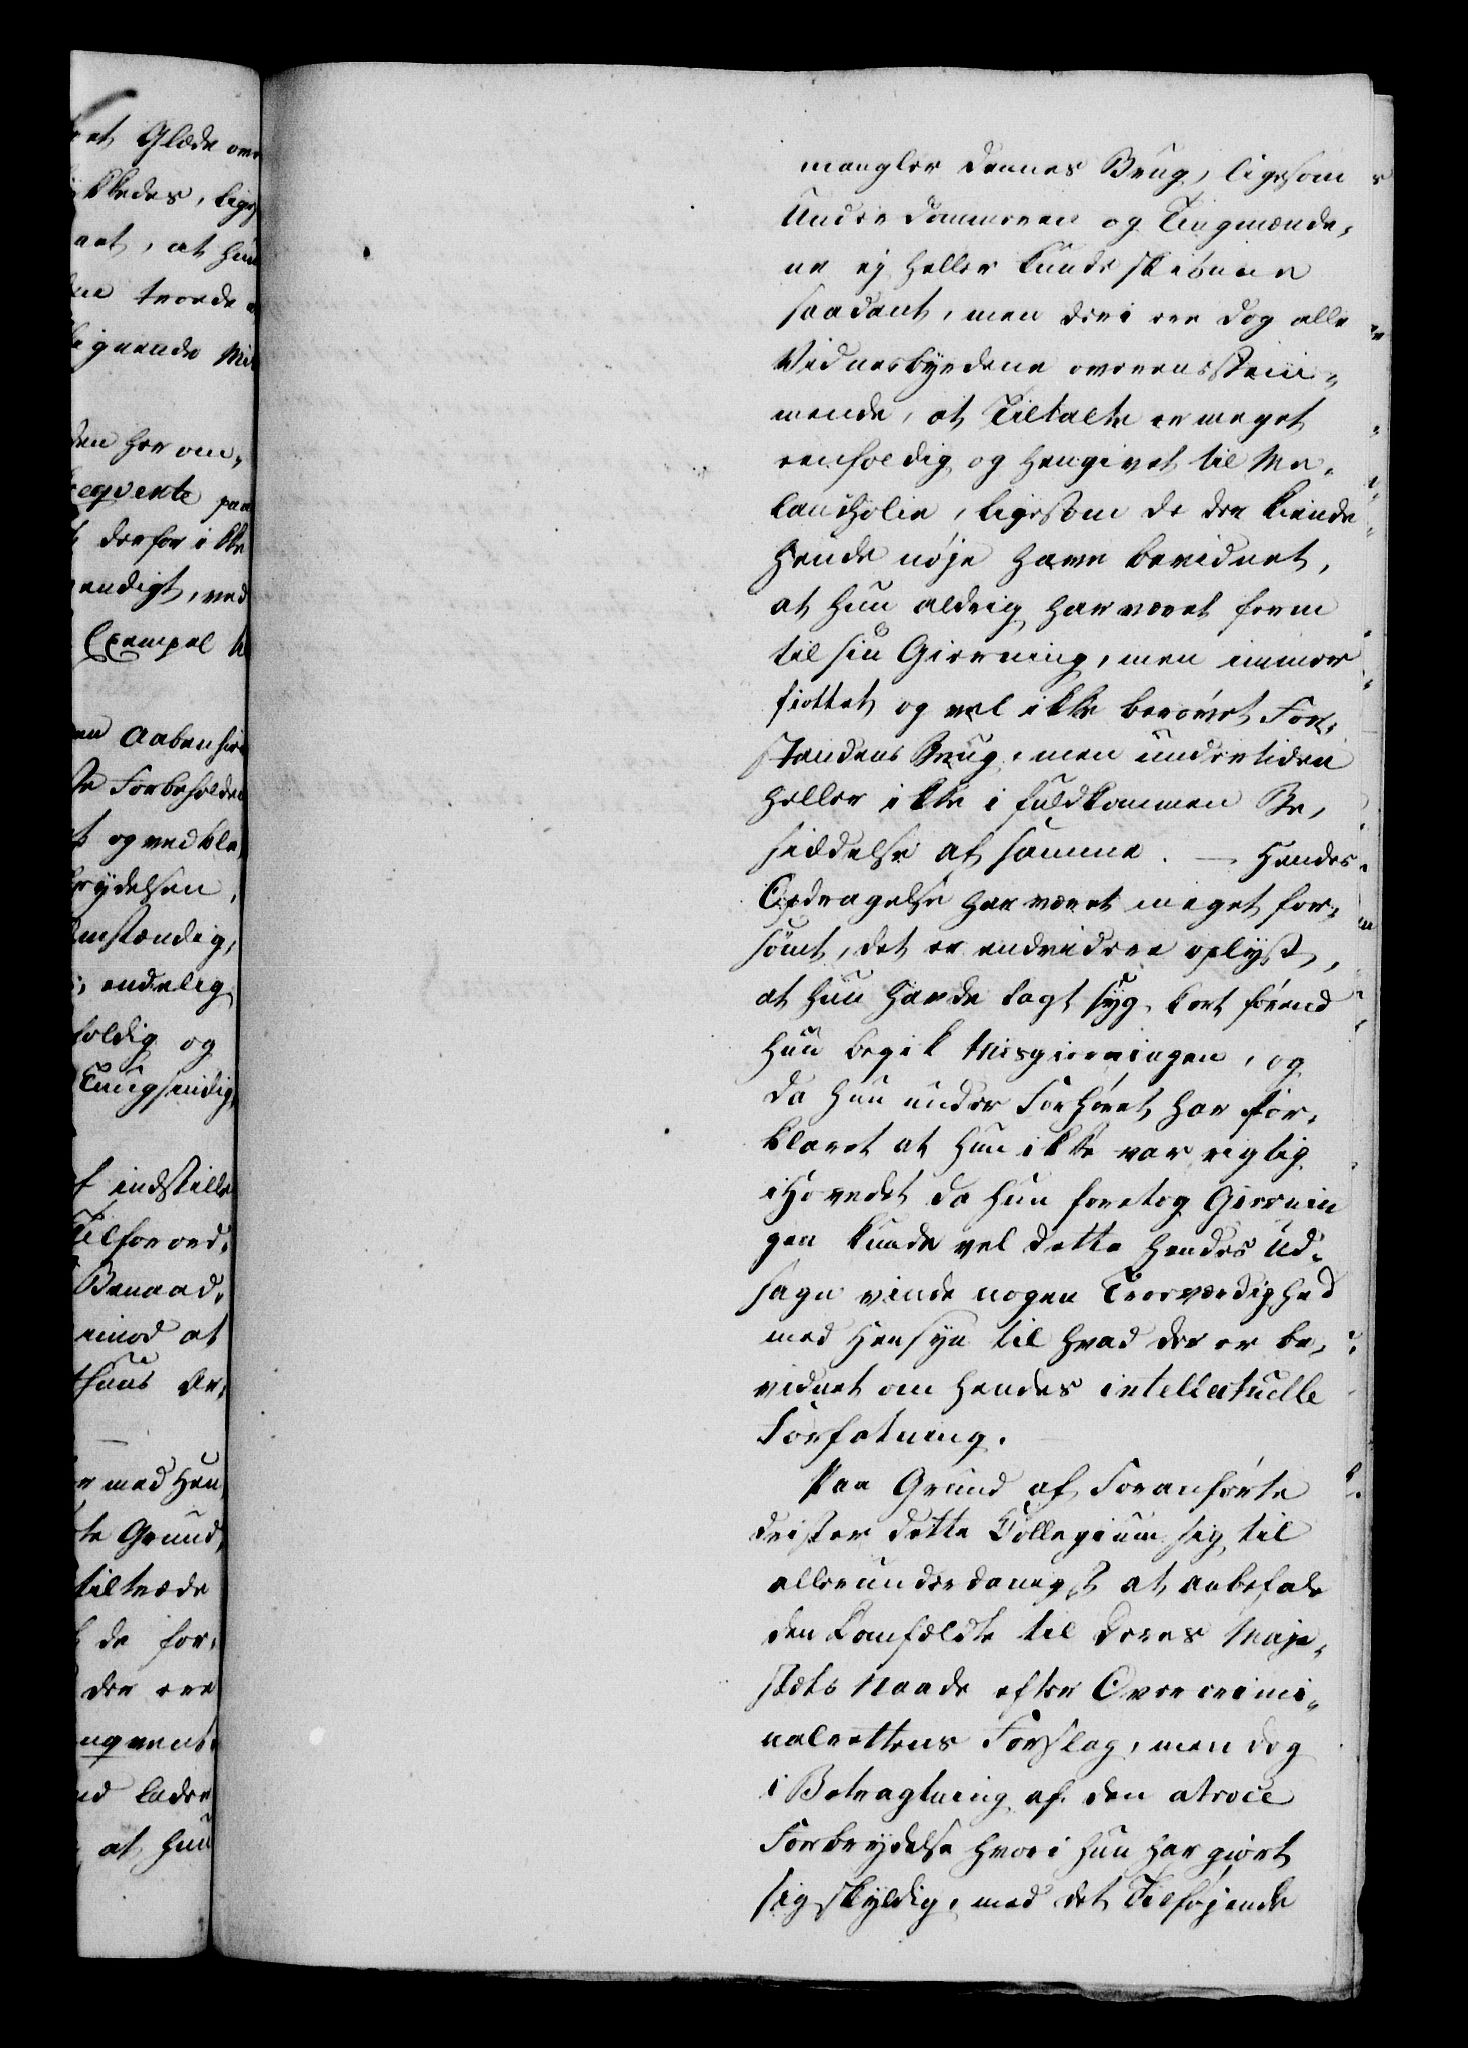 mangler dennes Brug, ligesom
Underdommeren og Tingmænde,
ne ej heller kunde skiønne
saadant, men deri ere dog alle
Vidnesbyrdene overensstem,
mende, at Tiltalte er meget
eenfoldig og hengivet til Me,
lancholie, ligesom de der kiende
hende nøje have bevidnet,
at hun aldrig har været frem
til sin Gierning, men immer
siottet og vel ikke berøvet For,
standens Brug, men undertiden
heller ikke i fuldkommen Be,
siddelse af samme. — Hendes
Opdragelse har været meget for,
sømt, det er endvidere oplyst,
at hun havde lagt syg kort førend
hun begik Misgierningen, og
da hun under Forhøret har for,
klaret at hun ikke var rigtig
i Hovedet da hun foretog Giernin
gen kunde vel dette hendes Ud,
sagn vinde nogen Troværdighed
med Hensyn til hvad der er be,
vidnet om hendes intellectuelle
Forfatning.
Paa Grund af Foranførte
drister dette Collegium sig til
allerunderdanigst at anbefale
den Domfældte til Deres Maje,
stæts Naade efter Overcrimi,
nalrettens Forslag, men dog
i Betragtning af den atroce
Forbrydelse hvori hun har giort
sig skyldig, med det Tilføjende